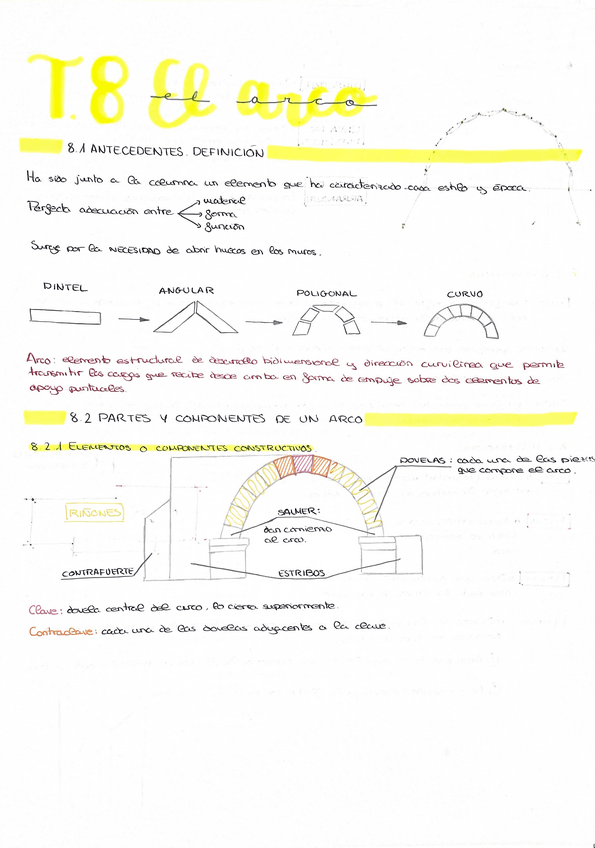 T.8 El arco
el arco
8.1 ANTECEDENTES. DEFINICIÓN
Ha sido junto a la columna un elemento que ha caracterizado cada estilo y época.
Perfecta adecuación entre
material
forma
función
Surge por la NECESIDAD de abrir huecos en los muros.
DINTEL
ANGULAR
POLIGONAL
CURVO
Arco: elemento estructural de desarrollo bidimensional y dirección curvilínea que permite
transmitir las cargas que recibe desde arriba en forma de empuje sobre dos elementos de
apoyo puntuales.
8.2 PARTES Y COMPONENTES DE UN ARCO
8.2.1 ELEMENTOS O COMPONENTES CONSTRUCTIVOS
DOVELAS: cada una de las piezas
que compone el arco.
RIÑONES
SALMER:
dan comienzo
al arco.
CONTRAFUERTE
ESTRIBOS
Clave: dovela central del curco, lo cierra superiormente.
Contraclave: cada una de las dovelas adyacentes a la clave.